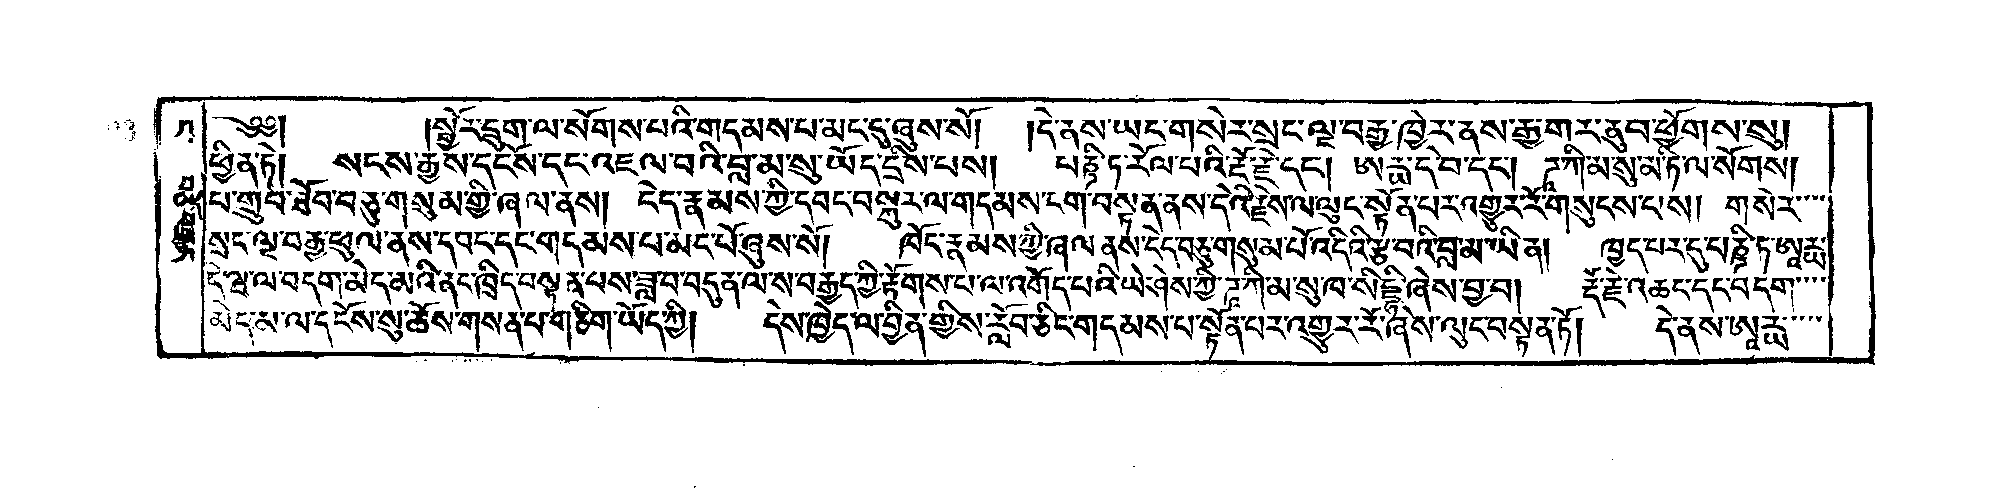 ༄༅། །སྦྱོར་དྲུག་ལ་སོགས་པའི་གདམས་པ་མང་དུ་ཞུས་སོ། །དེ་ནས་ཡང་གསེར་སྲང་ལྔ་བརྒྱ་ཁྱེར་ནས་རྒྱ་གར་ནུབ་ཕྱོགས་སུ།
ཕྱིན་ཏེ། སངས་རྒྱས་དངོས་དང་འཇལ་བའི་བླ་མ་སུ་ཡོད་དྲིས་པས། པཎྜི་ཏ་རོལ་པའི་རྡོ་རྗེ་དང། ཨརྻ་དེ་བ་དང། ཌཱཀི་མ་སུ་མ་ཏི་ལ་སོགས།
པ་གྲུབ་ཐོབ་བཅུ་གསུམ་གྱི་ཞལ་ནས། ངེད་རྣམས་ཀྱི་དབང་བསྐུར་ལ་གདམས་ངག་བསྟན་ནས་དེའི་རྗེས་ལ་ལུང་སྟོན་པར་འགྱུར་རོ་གསུངས་པས། གསེར་
སྲང་ལྔ་བརྒྱ་ཕུལ་ནས་དབང་དང་གདམས་པ་མང་པོ་ཞུས་སོ། ཁོད་རྣམས་ཀྱི་ཞལ་ནས་ངེད་བཅུ་གསུམ་པོ་འདིའི་རྩ་བའི་བླ་མ་ཡིན། ཁྱད་པར་དུ་པཎྜི་ཏ་ཨཱརྻ་
དེ་ཝ་ལ་བདག་མེད་མའི་ནང་ཁྲིད་བསྟན་པས་ཟླ་བ་བདུན་ལ་ས་བརྒྱད་ཀྱི་རྟོགས་པ་ལ་འགོད་པའི་ཡེ་ཤེས་ཀྱི་ཌཱཀི་མ་སུ་ཁ་སིདྡྷི་ཞེས་བྱ་བ། རྡོ་རྗེ་འཆང་དང་བདག་
མེད་མ་ལ་དངོས་སུ་ཆོས་གསན་པ་གཅིག་ཡོད་ཀྱི། དེས་ཁྱེད་ལ་བྱིན་གྱིས་རློབ་ཅིང་གདམས་པ་སྟོན་པར་འགྱུར་རོ་ཞེས་ལུང་བསྟན་ཏོ། དེ་ནས་ཨཱརྻ་